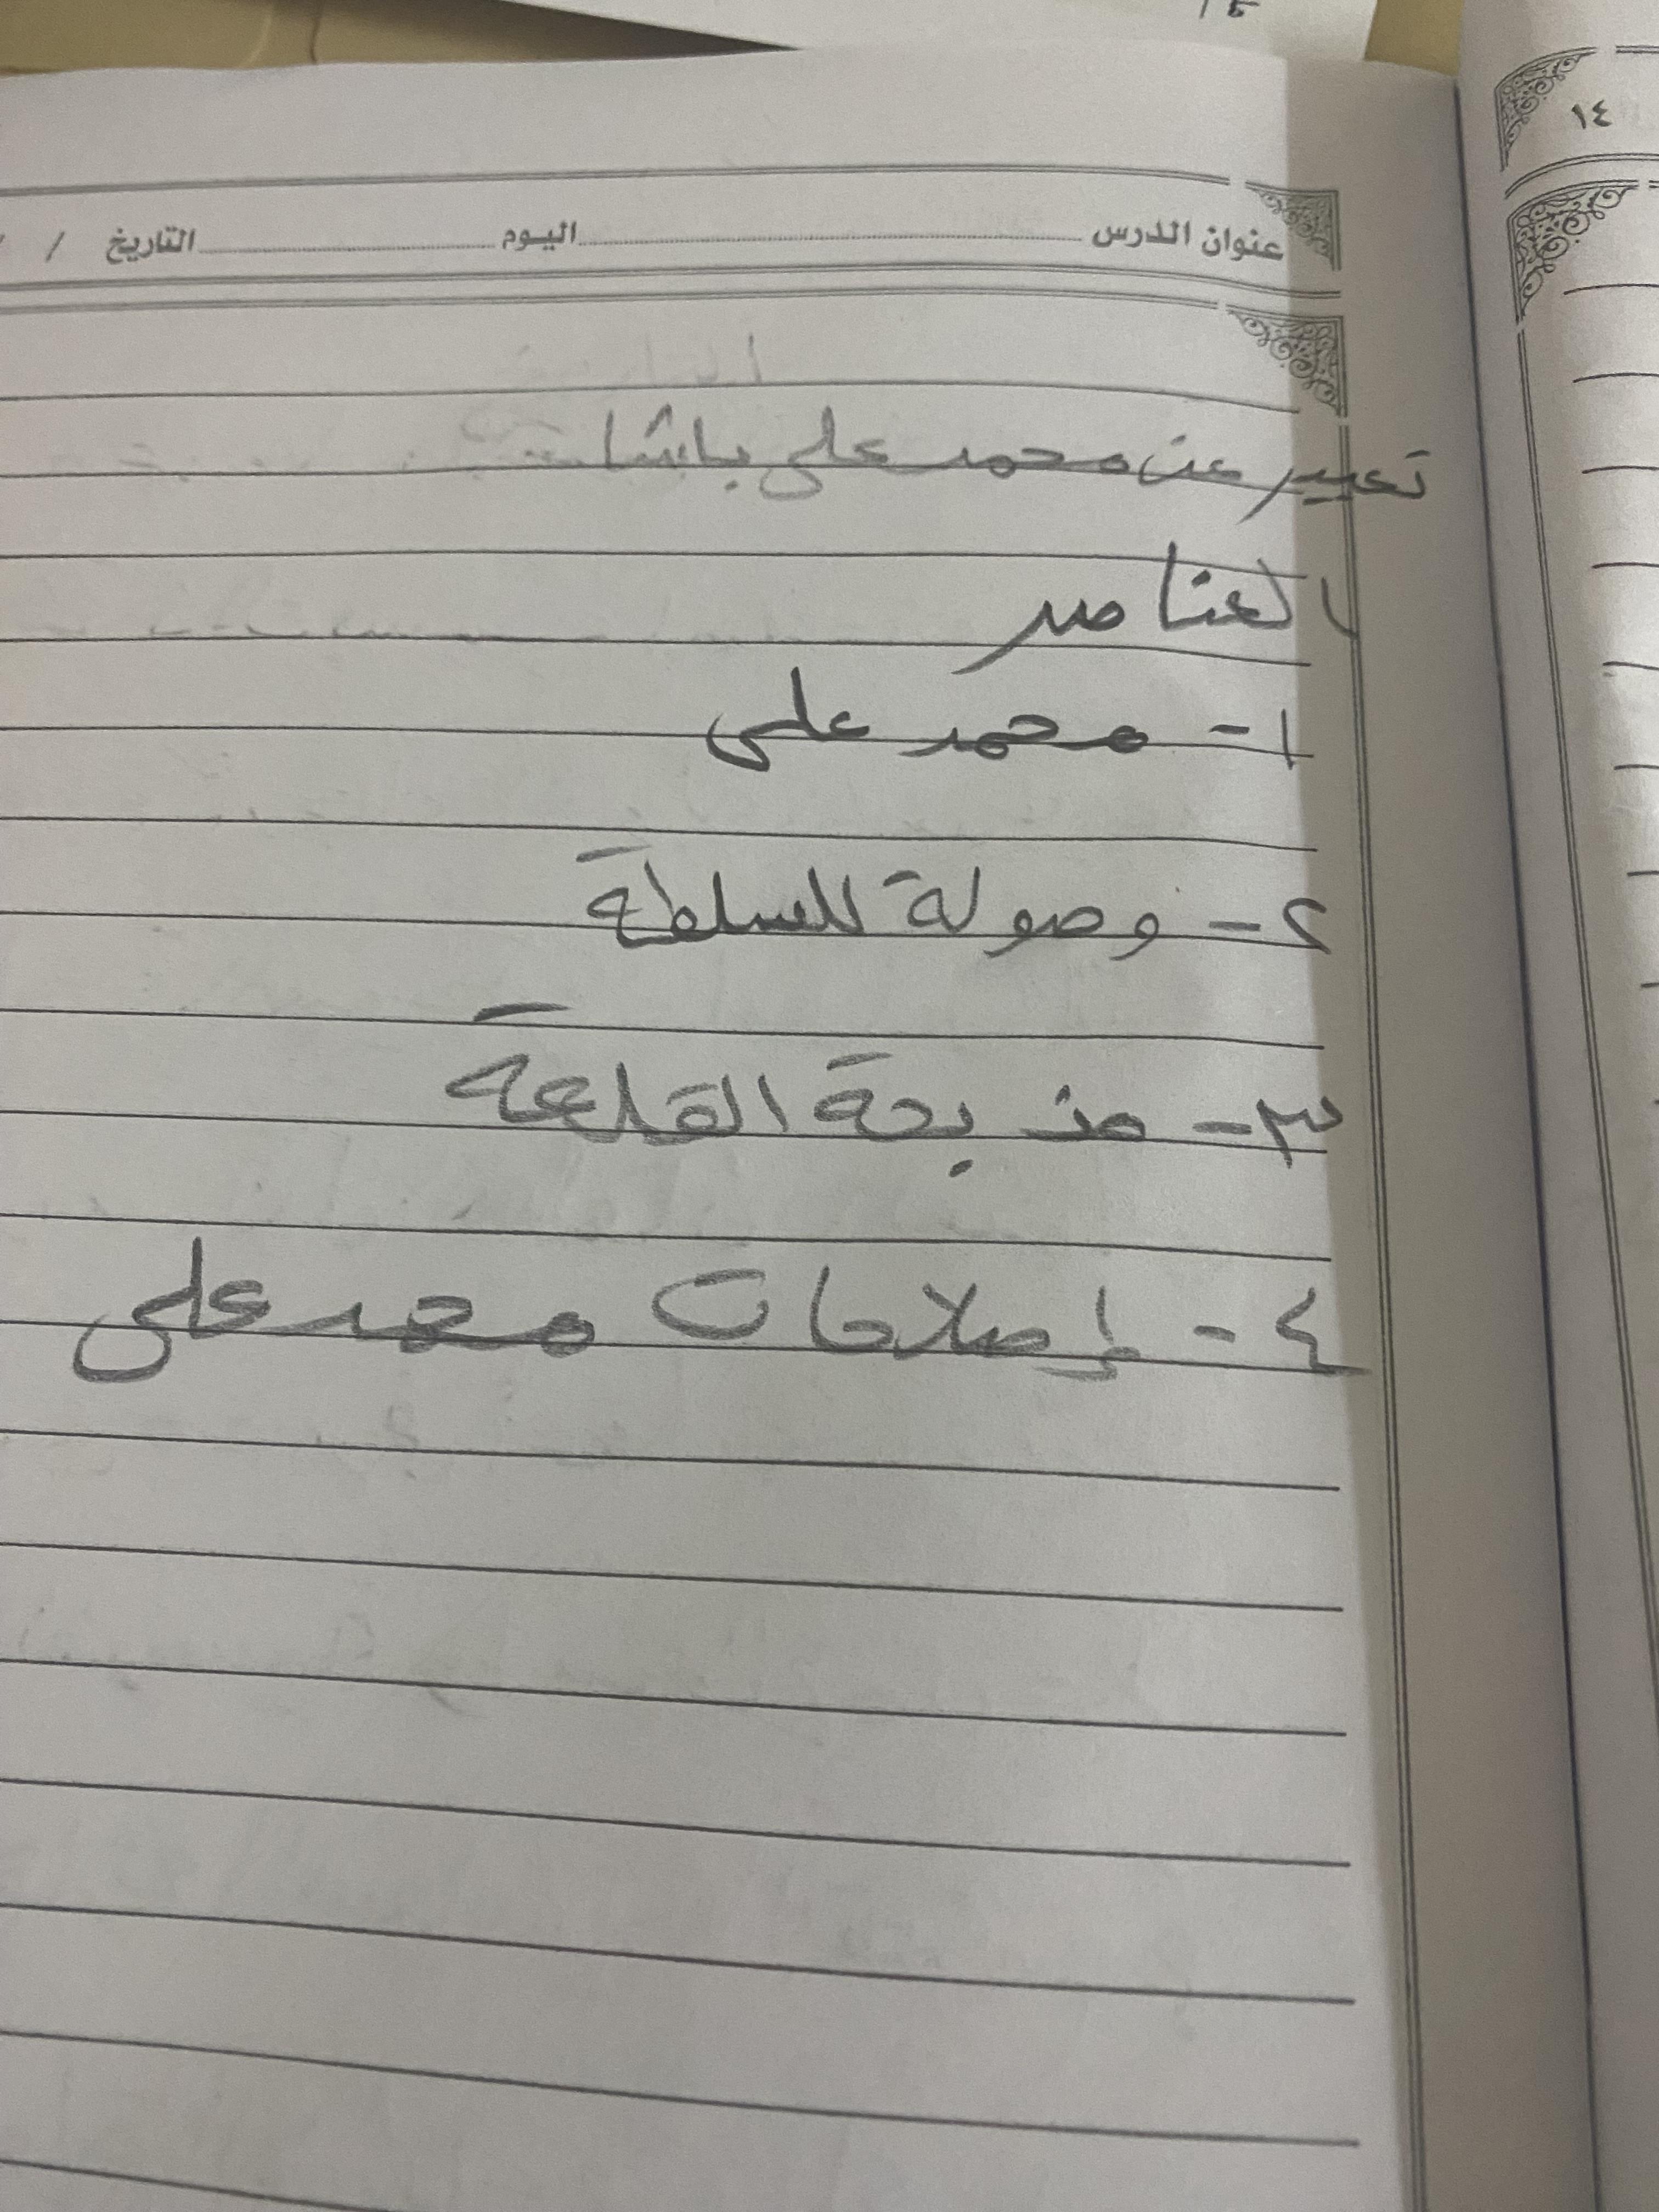 ١٤
عنوان الدرس ........ اليوم ........ التاريخ / /
تعبير عن محمد علي باشا
العناصر
١- محمد على
٢- وصولة للسلطة
٣- مذبحة القلعة
٤- إصلاحات محمد على